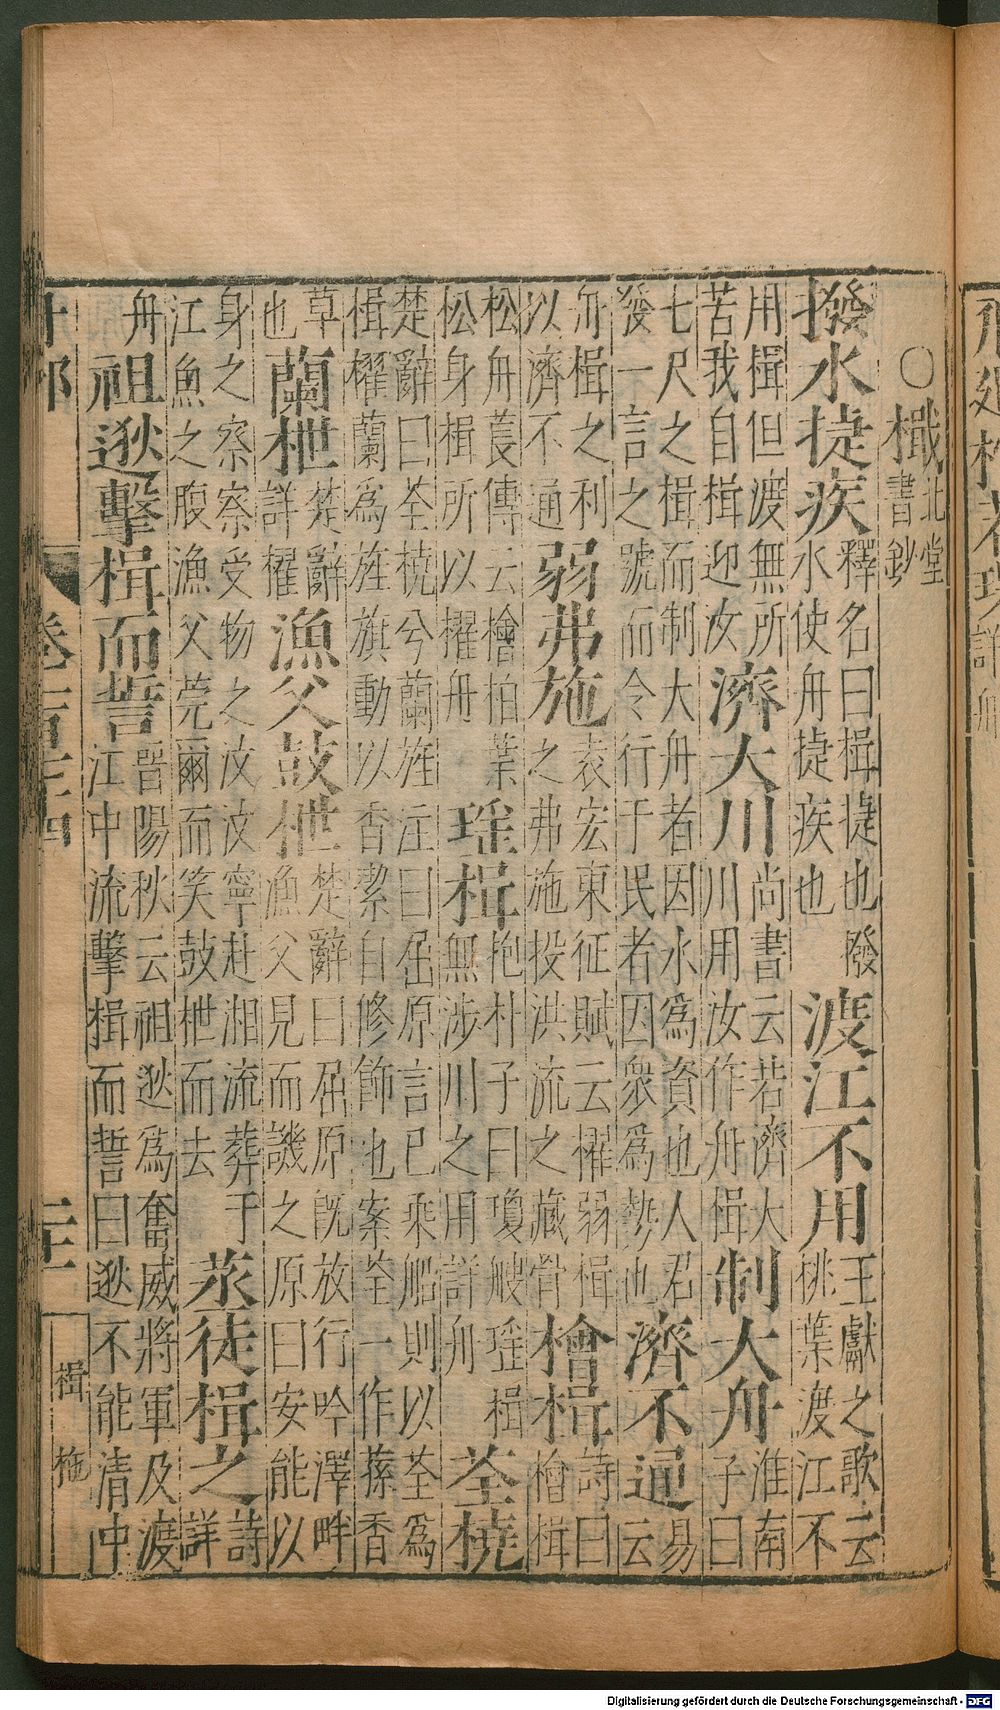 ○檝北堂書鈔
撥水捷疾釋名曰楫捷也撥水使舟捷疾也渡江不用王獻之歌云桃葉渡江不
用楫但渡無所苦我自楫迎汝濟大川尚書云若濟大川用汝作舟楫制大舟淮南子曰
七尺之楫而制大舟者因水爲資也人君發一言之號而令行于民者因衆爲勢也濟不通易云
舟楫之利以濟不通弱弗施袁宏東征賦云櫂弱楫之弗施投洪流之藏骨檜楫詩曰檜楫
松舟萇傳云檜柏葉松身楫所以擢舟瑶楫抱朴子曰瓊艘瑶楫無涉川之用詳舟荃橈
楚辭曰荃橈兮蘭旌注曰屈原言已乘船則以荃爲楫櫂蘭爲旌旗動以香潔自修飾也案荃一作蓀香
草也蘭枻楚辭詳櫂漁父鼓枻楚辭曰屈原旣放行吟澤畔漁父見而譏之原曰安能以
身之察察受物之汶汶寧赴湘流葬于江魚之腹漁父莞爾而笑鼓枻而去蒸徒楫之詩詳
舟祖逖擊楫而誓晉陽秋云祖逖爲奮威將軍及渡江中流擊楫而誓曰逖不能清中
楫 柂
Digitalisierung gefördert durch die Deutsche Forschungsgemeinschaft - DFG